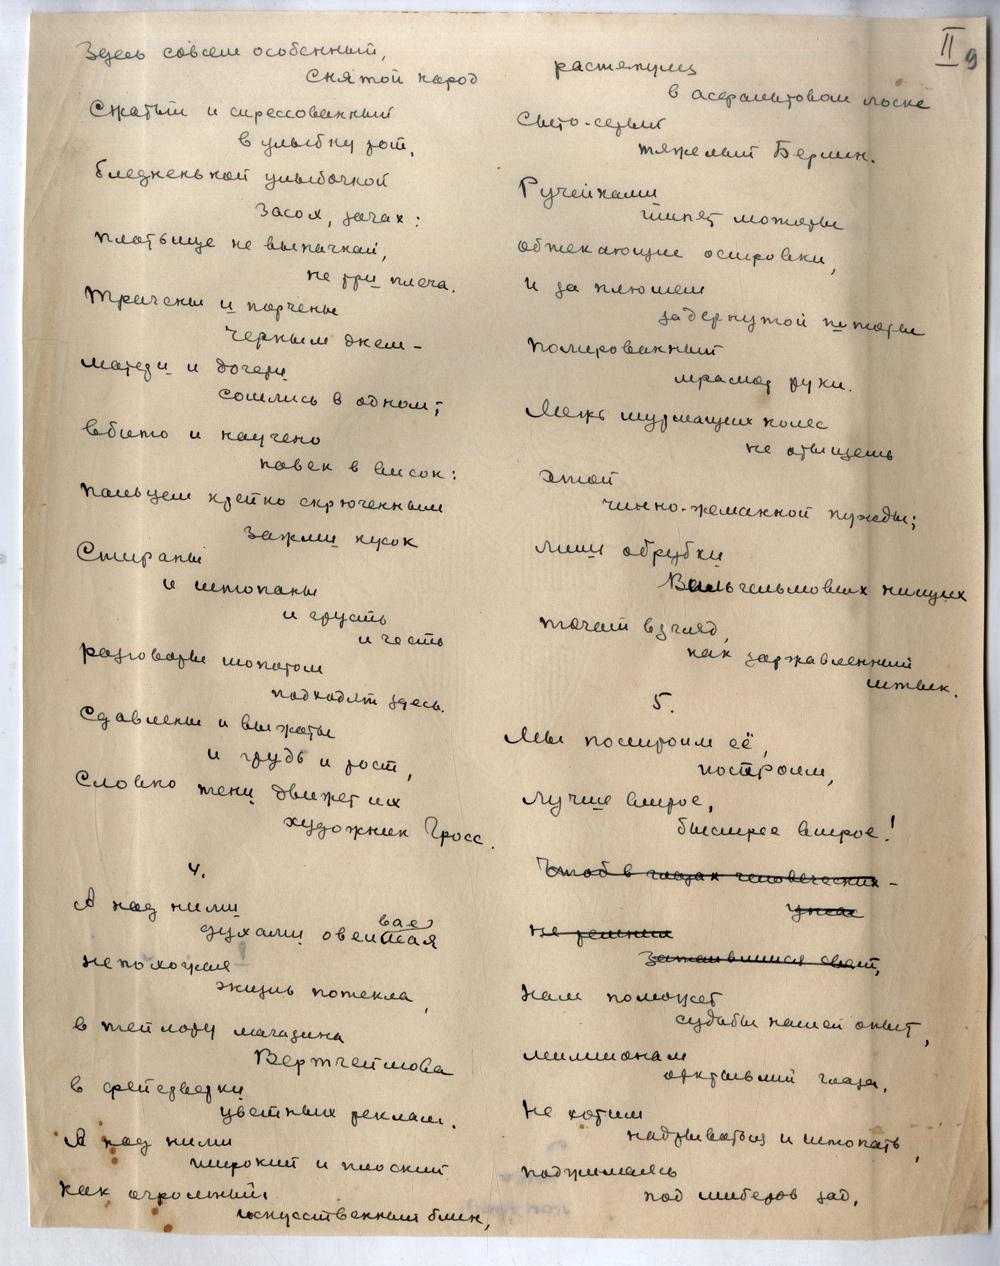 II 9
Здесь совсем особенный,
снятой народ
Сжатый и спрессованный
в улыбку рот,
бледненькой улыбочкой
засох, зачах:
платьице не выпачкай,
не три плеча.
Трачены и порчены
черным днем –
матери и дочери
сошлись в одном;
вбито и научено
навек в висок:
пальцем крепко скрюченным
зажми кусок
Стираны
и штопаны
и грусть
и честь
разговоры шопотом
подходят здесь.
Сдавлены и выжаты
и грудь и рост,
Словно тени движет их
художник Гросс.
4.
А над ними
духами овеивае
непохожая
жизнь потекла,
в
магазина
Вертгеймова
в
цветных реклам.
А над ними
широкий и плоский
как огромный
искусственный блин,
растянулся
в асфальтовом лоске
Сыто-серый
тяжелый Берлин.
Ручейками
шипят моторы
обтекающие островки,
и за плюшем
задернутой шторы
полированный
мрамор руки.
Меж шуршащих колес
не отыщешь
этой
чинно-жеманной нужды;
лишь обрубки
Вильгельмовых нищих
точат взгляд,
как заржавленный
штык.
5.
Мы построим её,
построим,
Лучше втрое,
быстрее втрое!
Чтоб в глазах человеческих –
не
Затаившийся свет,
Нам поможет
судьбы нашей опыт,
миллионам
открывший глаза,
Не хотим
надрываться и штопать,
поджимаясь
под шиберов зад,